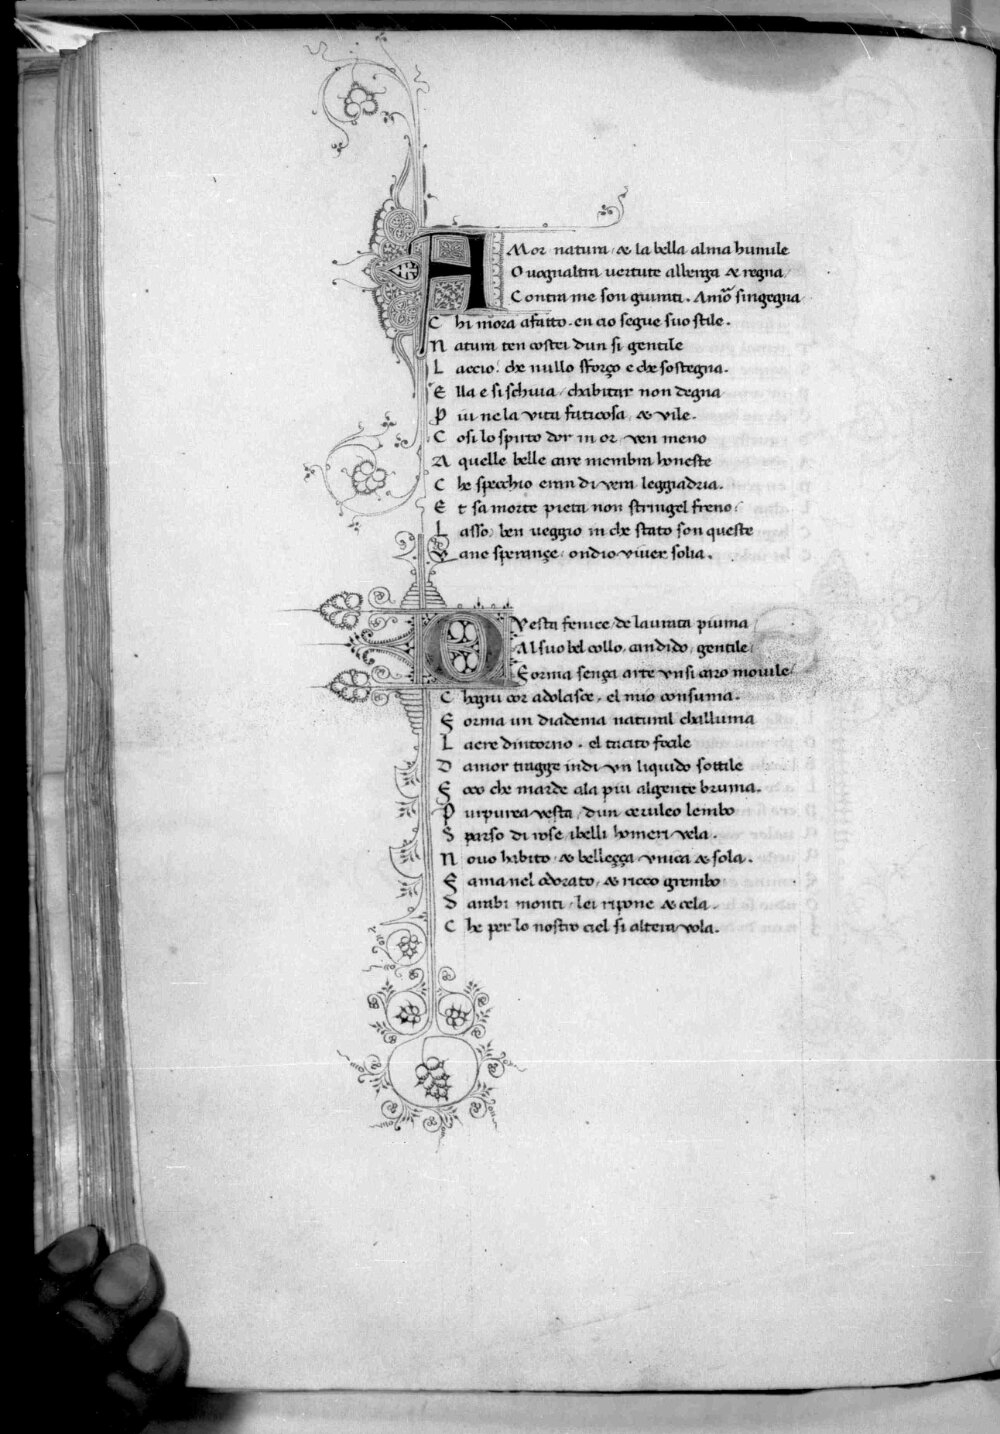 AMor natura ⁊ la bella alma humile
O uognaltra uertute alberga ⁊ regna
Contra me son giurati. Amor̄ singegna
C hi mora afatto. en cio segue suo stile.
N atura ten costei dun si gentile
L accio. che nullo sforço e che sostegna.
E lla e si schiua / chabitar non degna
P iu ne la vita faticosa, ⁊ vile.
C osi lo spirto dor in or ven meno
A quelle belle care membra honeste
C he specchio eran di vera leggiadria.
E t sa morte pieta non stringel freno
L asso, ben ueggio in che stato son queste
V ane sperançe, ondio viuer solia.
QVesta fenice / de laurata piuma
Al suo bel collo, candido, gentile
Forma sença arte vnsi caro monile
C hogni cor adolcisce, el mio consuma.
F orma un diadema natural challuma
L aere dintorno. el tacito focile
D amor tragge indi vn liquido sottile
F oco che marde ala piu algente bruma.
P urpurea vesta / dun ceruleo lembo
S parso di rose ibelli homeri vela.
N ouo habito ⁊ belleçça vnica ⁊ sola.
F ama nel odorato, ⁊ ricco grembo
D arabi monti / lei ripone ⁊ cela.
C he per lo nostro ciel si altera vola.